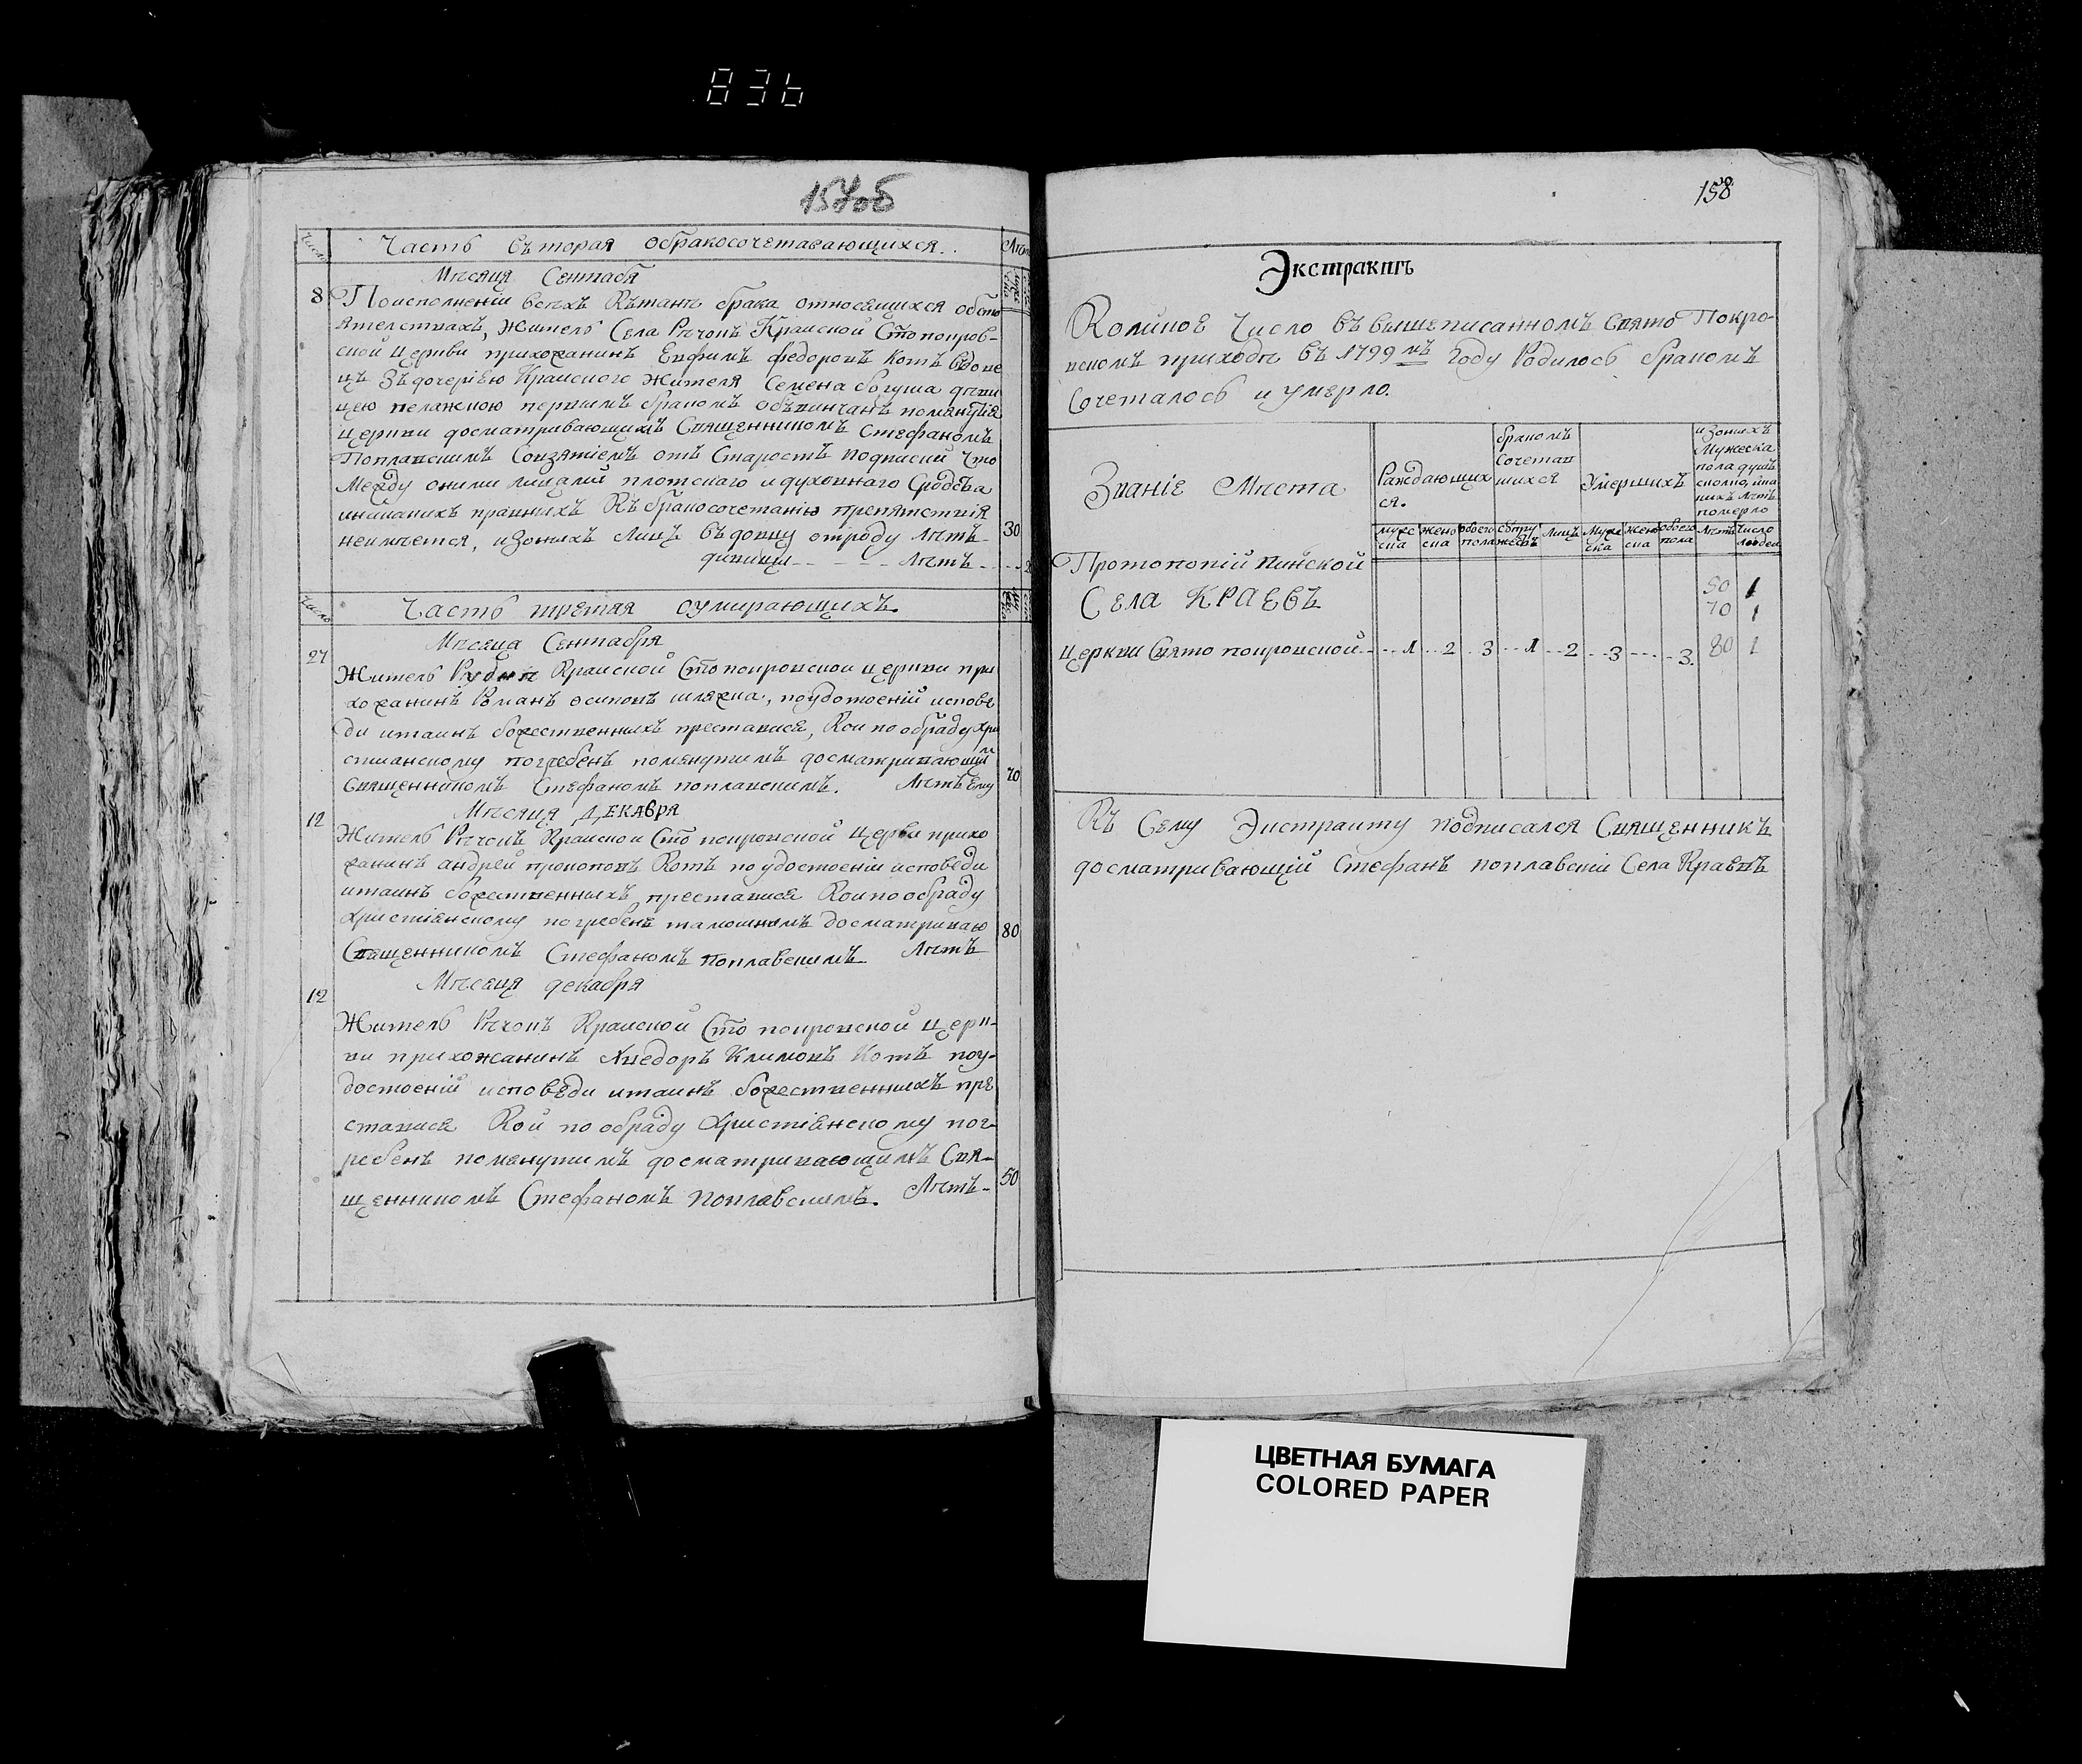 836
157об
Число
Часть въторая обракосочетавающихся.
Мѣсяца Сентабя
8
Поисполненіи всѣхъ Кътанъ брака относящихся обсто
ятелствахъ, Житель Села Рѣчокъ Краиской Сто покров-
ской церкви прихожанинъ Евфимъ федоровъ Котъ вдове
цъ Зъ дочеріею Краиского Жителя Семена богуша дѣви
цею пелагиею первимъ бракомъ объвинчанъ помянутія
церкви досматривающимъ Священникомъ Стефаномъ
Поплавскимъ Совзятіемъ отъ Старостъ подписки Что
Между оними лицами плотскаго и духовнаго Сродства
инииакихъ правнихъ Къ бракосочетанію препятствія
неимѣется, изоникъ Лицъ въдовцу отроду Лѣтъ
30
дивици - - - - Лѣтъ - - - - 2
Число
Часть третая оумирающихъ.
Мѣсяца Сентабря
27
Житель Краиской Сто покровской церкви при
хожанинъ Романъ осиповъ шляхта, поудотоеній испове
ди итаинъ божественнихъ преставися, Кои по обряду хри
стианскому погребенъ помянутимъ досматривающи
м
Священникомъ Стефаномъ поплавскимъ. Лѣтъ Ему
70
Мѣсяца ДЕКАВРЯ
12
Житель Рѣчокъ Краиской Сто покровской церкви прихо
жанинъ андрей прокоповъ Котъ по удостоеніи исповеди
итаинъ божественнихъ преставися Кои по обряду
христіянскому погребенъ тамошнимъ досматриваю
Священникомъ Стефаномъ поплавскимъ Лѣтъ
80
Мѣсяца декабря
12
Житель Рѣчокъ Краиской Сто покровской церк-
ви прихожанинъ Климовъ Котъ поу-
достоеній исповѣди итаинъ божественнихъ пре
ставися Кой по обряду христіянскому пог-
ребенъ помянутимъ досматривающимъ Свя-
щенникомъ Стефаномъ Поплавскимъ. Лѣтъ-
50
158
Экстрактъ
Коликое Число въ вышеписанномъ Свято Покро-
вскомъ приходѣ въ 1799мъ Году Родилось бракомъ
Сочеталось и умерло.
Званіе Мѣста
Раждающих
ся.
бракомъ
Сочетав
шихся
Умершихъ
изонихъ
Мужеска
пола душъ
сколко, ика
кихъ лѣтъ
померло
мужс
ска
жено
ска
обоего
пола
супру
жествъ
Лицъ
Муже
ска
жено
ска
обоего
пола
Лѣтъ
Число
людеи
Протопопій пинской
Села КРАЕВЪ
50 1
70 1
церкви Свято покровской - - 1 - - 2 - 3 - - 1 - - 2 - - 3 - - - - 3 80 1
Къ Сему Экстракту подписался Священникъ
досматривающій Стефанъ поплавскій Села Краевъ
ЦВЕТНАЯ БУМАГА
COLORED PAPER